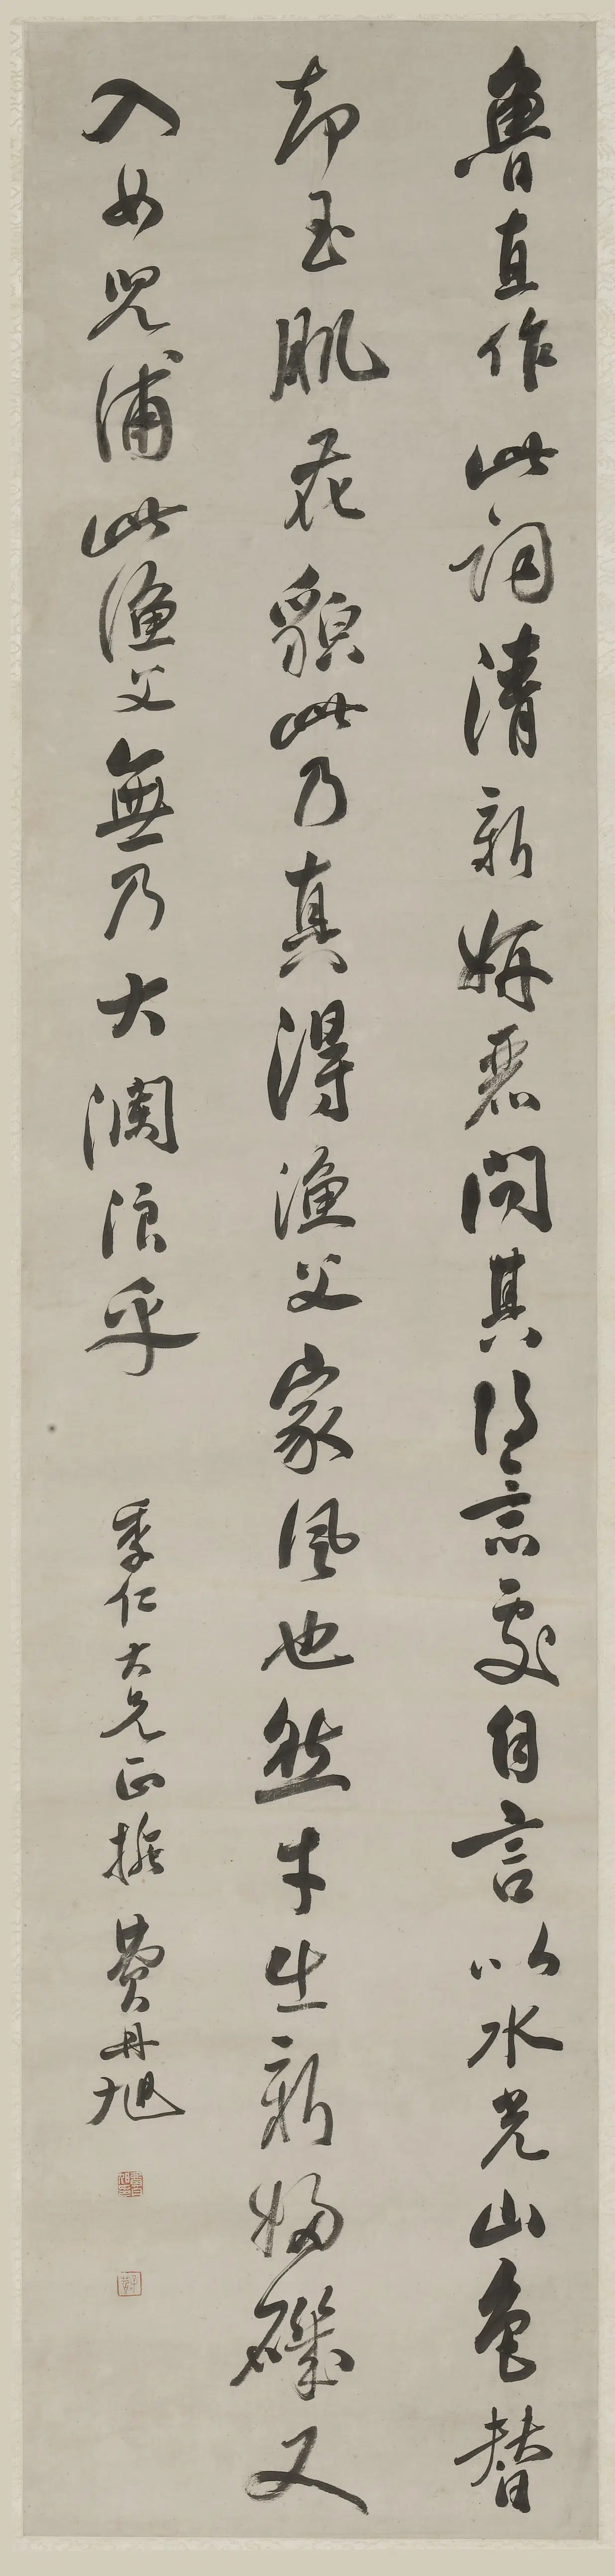 魯直作此詞清新妍麗問其得意處自言以水光山色替
却玉肌花貌此乃真得漁父家風也然才出新婦磯又
入女兒浦此漁父無乃大瀾浪乎
季仁大兄正 費丹旭